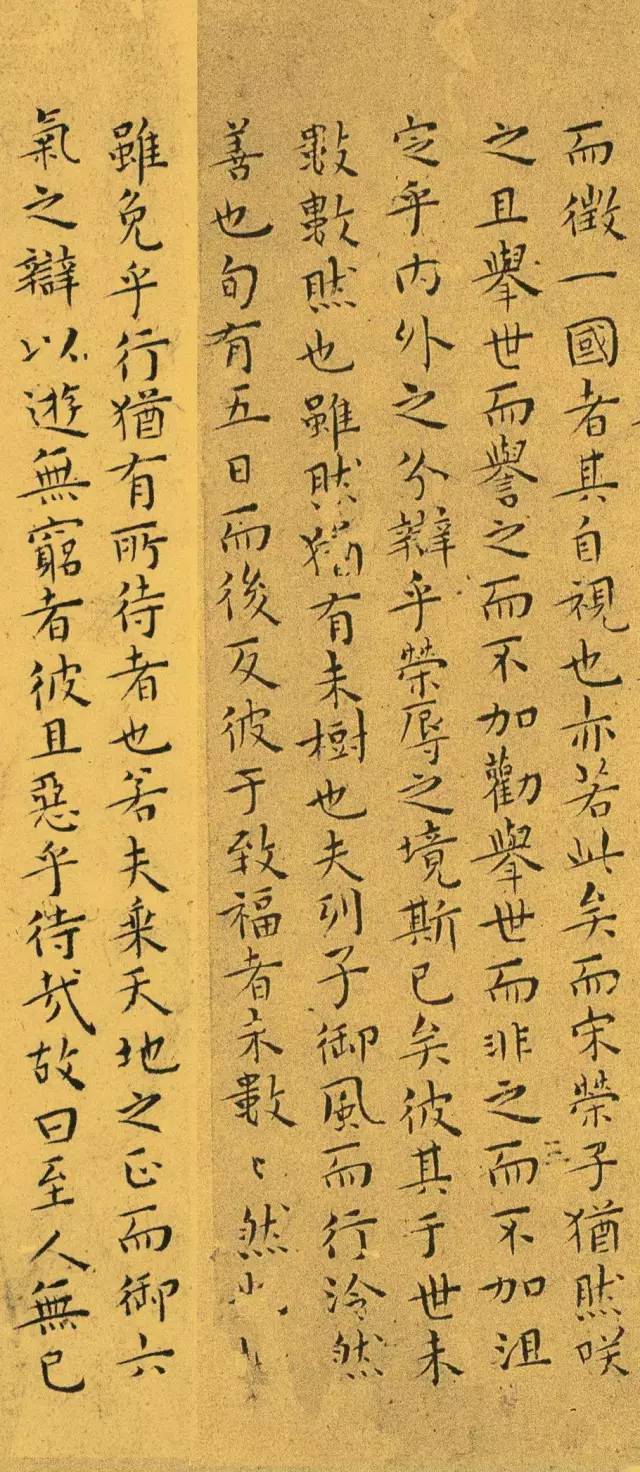 而徵一國者其自視也亦若此矣而宋榮子猶然咲
之且舉世而譽之而不加勸舉世而非之而不加沮
定乎內外之分辯乎榮辱之境斯已矣彼其于世未
數數然也雖然猶有未樹也夫列子御風而行泠然
善也旬有五日而後反彼于致福者未數〻然也
雖免乎行猶有所待者也若夫乘天地之正而御六
氣之辯以遊無窮者彼且惡乎待哉故曰至人無己